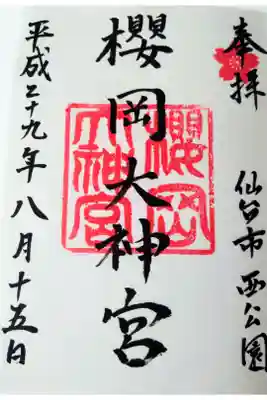 奉拝
仙台市 西公園
櫻岡大神宮
櫻岡
大神宮
平成二十九年八月十五日